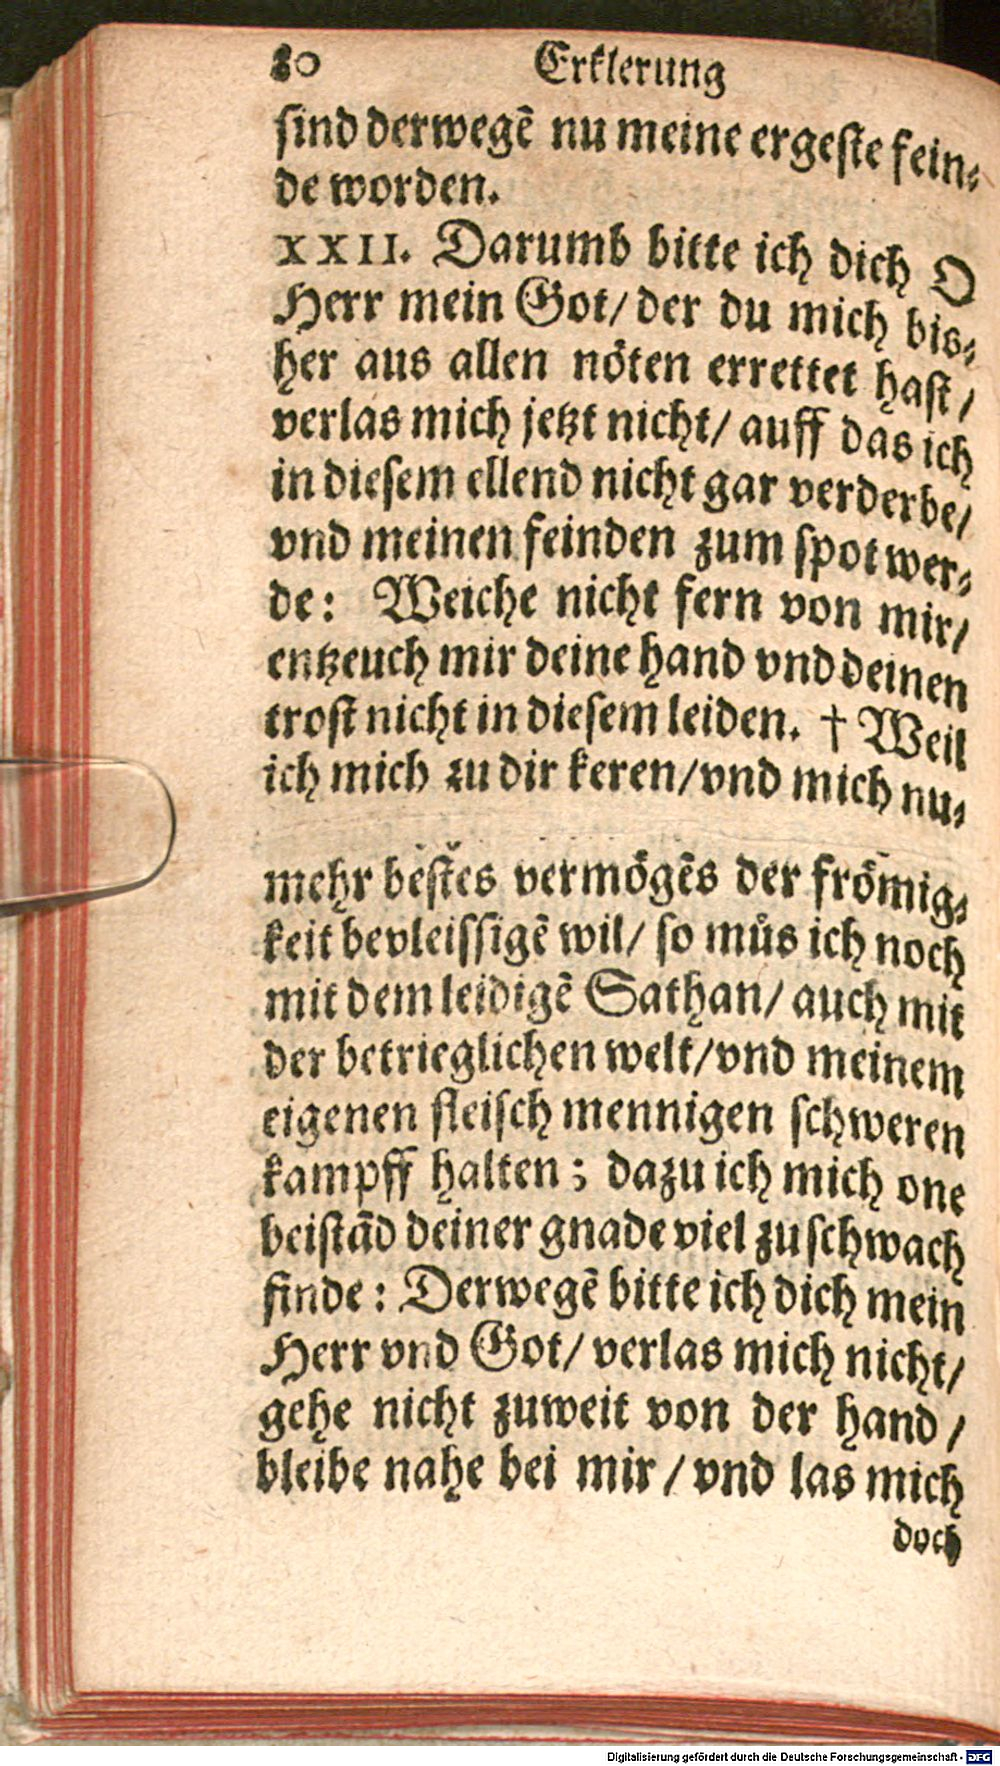 80 Erklerung
sind derwegẽ nu meine ergeste fein-
de worden.
XXII. Darumb bitte ich dich O
Herr mein Got/ der du mich bis-
her aus allen nöten errettet hast/
verlas mich jetzt nicht/ auff das ich
in diesem ellend nicht gar verderbe/
vnd meinen feinden zum spot wer-
de: Weiche nicht fern von mir/
entzeuch mir deine hand vnd deinen
trost nicht in diesem leiden. † Weil
ich mich zu dir keren/vnd mich nu-
mehr bestes vermögẽs der frömig-
keit bevleissigẽ wil/ so můs ich noch
mit dem leidigẽ Sathan/ auch mit
der betrieglichen welt/vnd meinem
eigenen fleisch mennigen schweren
kampff halten; dazu ich mich one
beistãd deiner gnade viel zu schwach
finde: Derwegẽ bitte ich dich mein
Herr vnd Got/ verlas mich nicht/
gehe nicht zuweit von der hand/
bleibe nahe bei mir/vnd las mich
doch
Digitalisierung gefördert durch die Deutsche Forschungsgemeinschaft - DFG